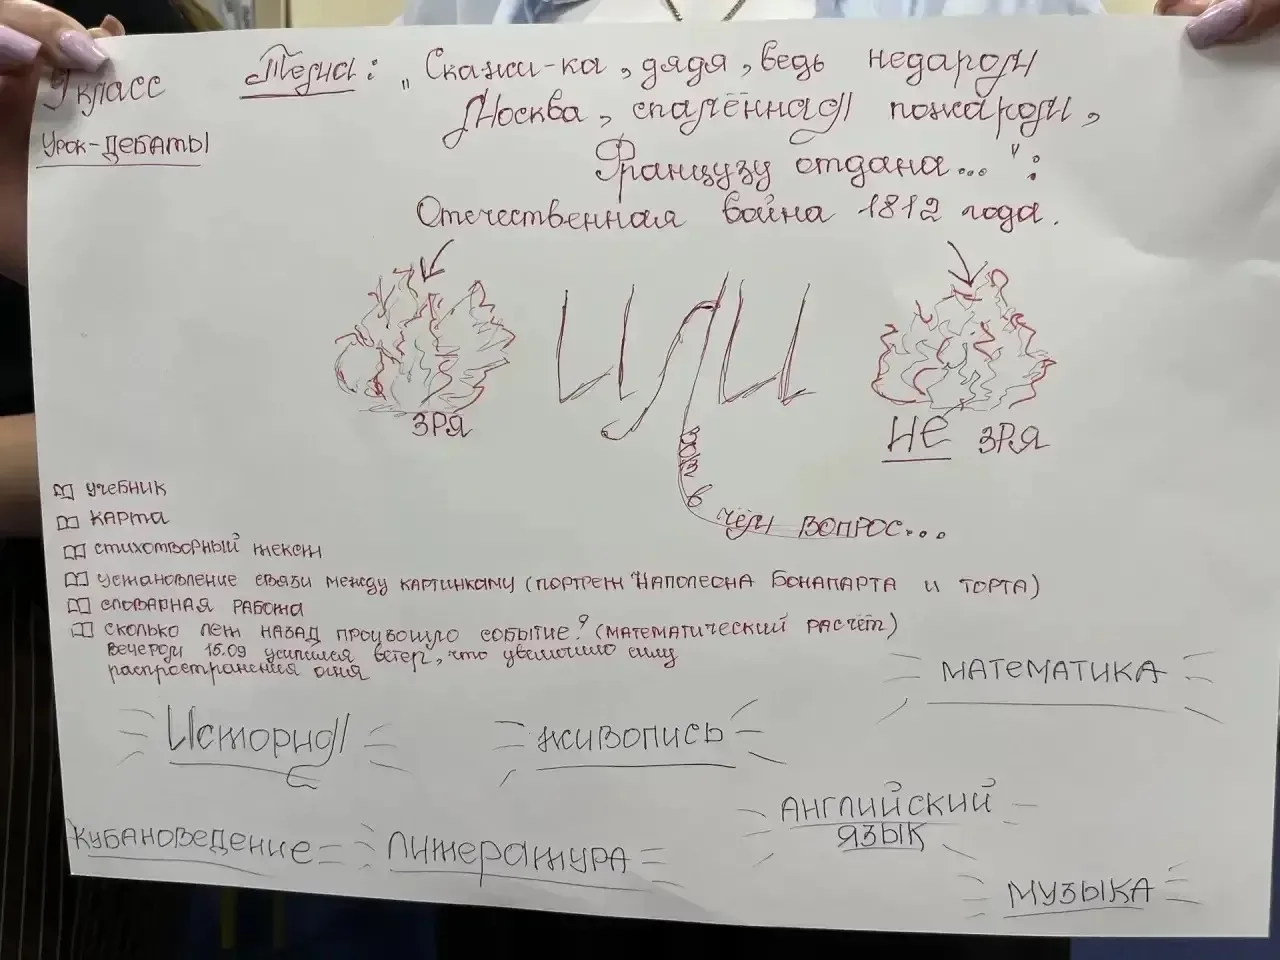 9 класс
Урок-дебаты
Тема: "Скажи-ка, дядя, ведь недаром
Москва, спалённая пожаром,
Французу отдана..." :
Отечественная война 1812 года.
ИЛИ
ЗРЯ
НЕ ЗРЯ
вот в чём вопрос...
учебник
карта
стихотворный текст
установление связи между картинками (портрет Наполеона Бонапарта и торта)
словарная работа
сколько лет назад произошло событие? (математический расчёт)
Вечером 15.09 усилился ветер, что увеличило силу
распространения огня
математика
История
живопись
английский
язык
Кубановедение
литература
музыка